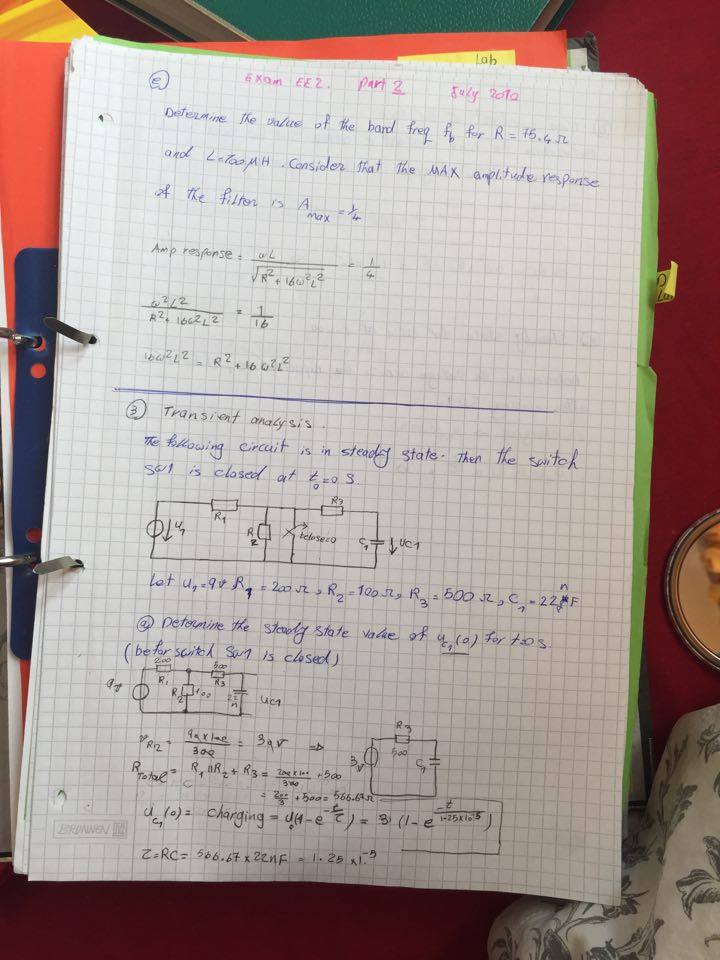 Lab
e) Exam EE2. Part 2 July 2010
Determine the value of the band freq fb for R = 75.4 Ω
and L=700 μH. Consider that the MAX amplitude response
of the filter is A max = 1/4
Amp response = ωL / √(R² + 16ω²L²) = 1/4
ω²L² / (R² + 16ω²L²) = 1/16
16ω²L² = R² + 16ω²L²
③ Transient analysis.
The following circuit is in steady state. Then the switch
SW1 is closed at t₀=0 S.
R1 R3
U1 R2 tclose=0 C1 UC1
Let U1=9V R1=200Ω, R2=100Ω, R3=500Ω, C1=22nF
ⓐ Determine the steady state value of uc1(0) for t=0 s.
(befor switch SW1 is closed)
200 500
R1 R3
9V R2 100 22n UC1
R3
500
3V C1
= 3 V ⇒
RTotal = R1||R2 + R3 = 200x100/300 + 500
= 200/3 + 500 = 566.67Ω
Uc1(0) = charging = U0(1-e^(-t/τ)) = 3(1-e^(-t/1.25x10^-5))
τ=RC= 566.67 x 22nF = 1.25 x1^-5
BRUNNEN